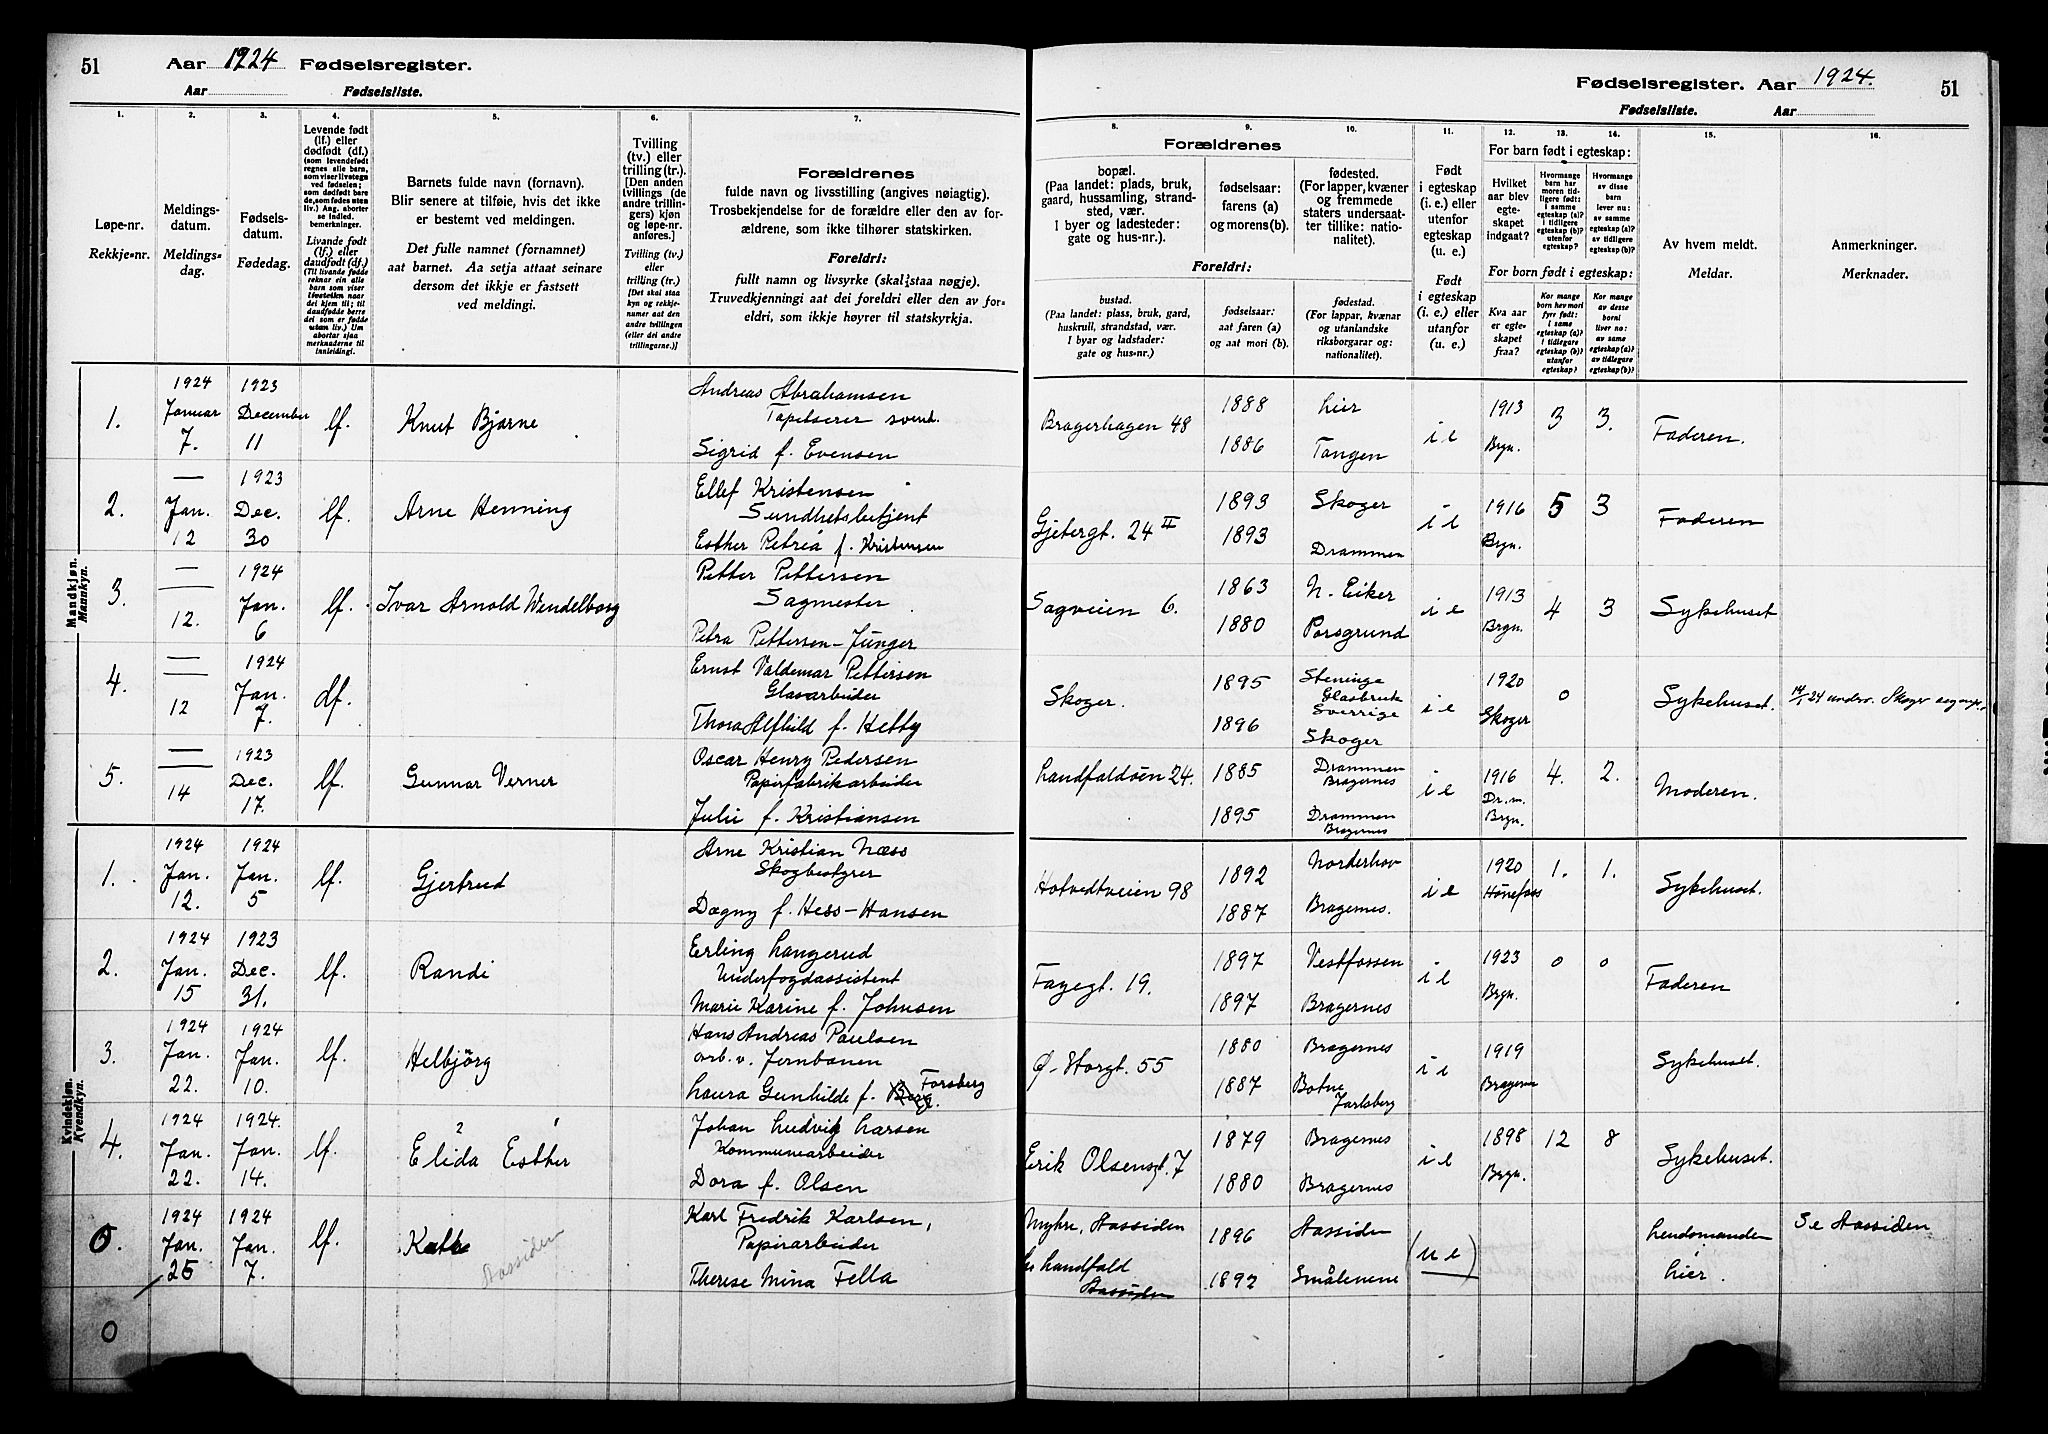 51
Aar 1924 Fødselsregister.
Aar Fødselsliste.
Fødselsregister. Aar 1924.
51
Fødselsliste. Aar
1.
Løpe-nr.
Rekkje-nr.
2.
Meldings-
datum.
Meldings-
dag.
3.
Fødsels-
datum.
Fødedag.
4.
Levende født
(lf.) eller
dødfødt (df.)
(som levendefødt
regnes alle barn,
som viser livstegn
ved fødselen;
som dødfødt bare
de, som fødes uten
liv.) Ang. aborter
se indled.
bemerkninger.
Livande født
(lf.) eller
daudfødt (df.)
(Til livande fødde
reknar ein alle
barn som viser
livsteikn naar
dei kjem til; til
daudfødde berre
dei som er fødde
utan liv.) Um
abortar sjaa
merknaderne til
innleidingi.
5.
Barnets fulde navn (fornavn).
Blir senere at tilføie, hvis det ikke
er bestemt ved meldingen.
Det fulle namnet (fornamnet)
aat barnet. Aa setja attaat seinare
dersom det ikkje er fastsett
ved meldingi.
6.
Tvilling
(tv.) eller
trilling (tr.).
[Den anden
tvillings (de
andre trillin-
gers) kjøn
og løpe-nr.
anføres.]
Tvilling (tv.)
eller
trilling (tr.)
[Det skal staa
kyn og rekkje-
numer aat den
andre tvillingen
(eller dei andre
trillingarne.)]
7.
Forældrenes
fulde navn og livsstilling (angives nøiagtig).
Trosbekjendelse for de forældre eller den av for-
ældrene, som ikke tilhører statskirken.
Foreldri:
fullt namn og livsyrke (skal staa nøgje).
Truvedkjenningi aat dei foreldri eller den av for-
eldri, som ikkje høyrer til statskyrkja.
Forældrenes
8.
bopæl.
(Paa landet: plads, bruk,
gaard, hussamling, strand-
sted, vær.
I byer og ladesteder:
gate og hus-nr.).
Foreldri:
bustad.
(Paa landet: plass, bruk, gard,
huskrull, strandstad, vær.
I byar og ladstader:
gate og hus-nr.)
9.
fødselsaar:
farens (a)
og morens (b).
fødselsaar:
aat faren (a)
og aat mori (b).
10.
fødested.
(For lapper, kvæner
og fremmede
staters undersaat-
ter tillike: natio-
nalitet).
fødestad.
(For lappar, kvænar
og utanlandske
riksborgarar og:
nationalitet).
11.
Født
i egteskap
(i. e.) eller
utenfor
egteskap
(u. e.)
Født
i egteskap
(i. e.) eller
utanfor
(u. e.)
For barn født i egteskap:
12.
Hvilket
aar blev
egte-
skapet
indgaat?
For born født i egteskap:
Kva aar
er egte-
skapet
fraa?
13.
Hvormange
barn har
moren tid-
ligere født:
i samme
egteskap (a)?
i tidligere
egteskap (b)?
utenfor
egteskap?
Kor mange
born hev mori
fyrr født:
i same
egteskap (a)?
i tidlegare
egteskap (b)?
utanfor
egteskap?
14.
Hvormange
av disse
barn
lever nu:
av samme
egteskap (a)?
av tidligere
egteskap (b)?
Kor mange
av desse
borni
liver no:
av same
egteskap (a)?
av tidlegare
egteskap (b)?
15.
Av hvem meldt.
Meldar.
16.
Anmerkninger.
Merknader.
Mandkjøn.
Mannkyn.
1. 1924 Januar 7. 1923 December 11 lf. Knut Bjarne
Andreas Abrahamsen
Tapetserer svend.
Sigrid f. Evensen
Bragerhagen 48 1888 Lier 1886 Tangen i e 1913 Brgn. 3 3. Faderen.
2. — Jan. 12 1923 Dec. 30 lf. Arne Henning
Ellef Kristensen
Sundhetsbetjent
Esther Petrea f. Kristensen
Gjetergt. 24 II 1893 Skoger 1893 Drammen i e 1916 Brgn. 5 3 Faderen
3. — 12. 1924 Jan. 6 lf. Ivar Arnold Wendelborg
Petter Pettersen
Sagmester
Petra Pettersen-Junger
Sagveien 6. 1863 N. Eiker 1880 Porsgrund i e 1913 Brgn. 4 3 Sykehuset
4. — 12 1924 Jan. 7. df.
Ernst Valdemar Pettersen
Glasarbeider
Thora Alfhild f. Hetty
Skoger. 1895 Steninge Glasbruk Sverrige 1896 Skoger i e 1920 Skoger 0 Sykehuset. 14/1 24 underr. Skoger
5. — 14 1923 Dec. 17. lf. Gunnar Verner
Oscar Henry Pedersen
Papirfabrikarbeider
Julie f. Kristiansen
Landfaldøen 24. 1885 Drammen Bragernes 1895 Drammen Bragernes i e 1916 Dr.m. Brgn. 4. 2. Moderen.
Kvindekjøn.
Kvendkyn.
1. 1924 Jan. 12. 1924 Jan. 5 lf. Gjertrud
Arne Kristian Næss
Skogbestyrer
Dagny f. Hess-Hansen
Hotvedtveien 98 1892 Norderhov 1887 Bragernes. i e 1920 Hønefoss 1. 1. Sykehuset.
2. 1924 Jan. 15 1923 Dec. 31. lf. Randi
Erling Langerud
Underfogdassistent
Marie Karine f. Johnsen
Fagegt. 19. 1897 Vestfossen 1897 Bragernes i e 1923 Brgn. 0 0 Faderen
3. 1924 Jan. 22. 1924 Jan. 10. lf. Helbjörg
Hans Andreas Paulsen
arb. v. Jernbanen
Laura Gunhilde f. Berg. Forsberg
Ø-Storgt. 55 1880 Bragernes 1887 Botne Jarlsberg i e 1919 Bragernes Sykehuset.
4. 1924 Jan. 22. 1924. Jan. 14. lf. 2 1 Elida Esther
Johan Ludvig Larsen
Kommunearbeider
Dora f. Olsen
Erik Olsensgt. 7 1879 Bragernes 1880 Bragernes i e 1898 Brgn. 12 8 Sykehuset.
5. 1924 Jan. 25 1924 Jan. 7. lf. Aassiden
Karl Fredrik Karlsen,
Papirarbeider
Therese Mina Fella
Myhre, Aassiden Landfald Aassiden 1896 Aassiden 1892 Smålenene (u e) Lendsmanden Lier. S.e Aassiden
0